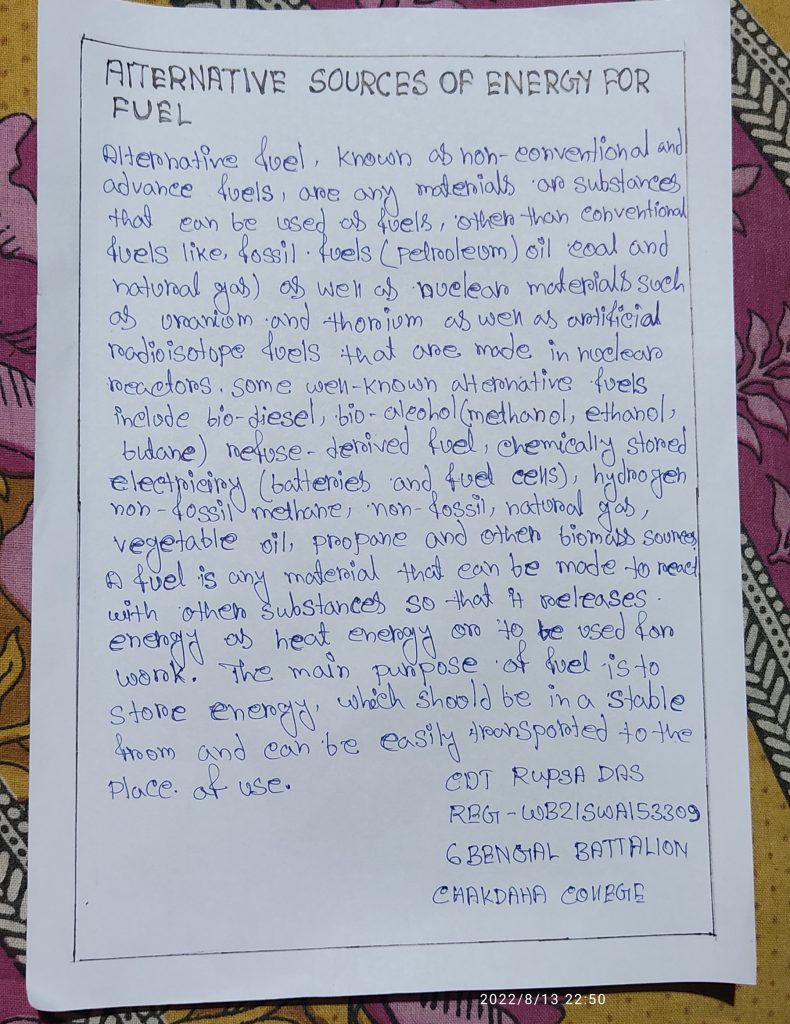 ALTERNATIVE SOURCES OF ENERGY FOR
FUEL
Alternative fuel, known as non-conventional and
advance fuels, are any materials or substances
that can be used as fuels, other than conventional
fuels like, fossil fuels (petroleum) oil coal and
natural gas) as well as nuclear materials such
as uranium and thorium as well as artificial
radioisotope fuels that are made in nuclear
reactors. some well-known alternative fuels
include bio-diesel, bio-alcohol (methanol, ethanol,
butane) refuse-derived fuel, chemically stored
electriciry (batteries and fuel cells), hydrogen
non-fossil methane, non-fossil, natural gas,
vegetable oil, propane and other biomass sources.
A fuel is any material that can be made to react
with other substances so that it releases
energy as heat energy or to be used for
work. The main purpose of fuel is to
store energy, which should be in a stable
from and can be easily transported to the
place of use.
CDT RUPSA DAS
REG-WB21SWA153309
6 BENGAL BATTALION
CHAKDAHA COLLEGE
2022/8/13 22:50